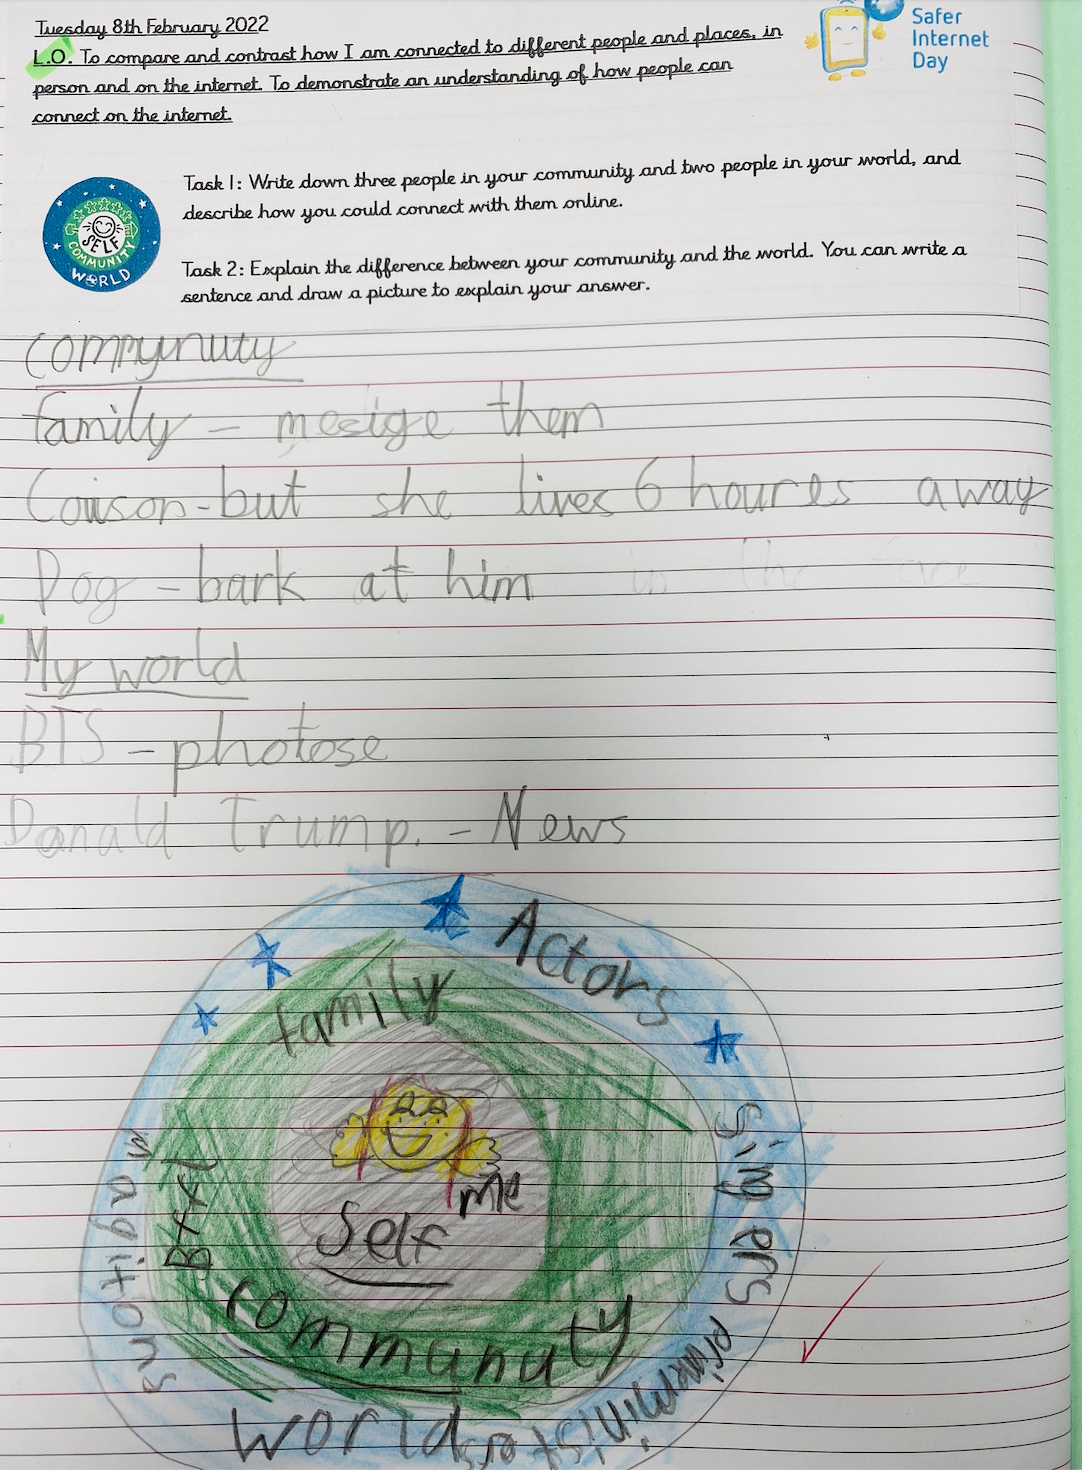 Tuesday 8th February 2022
L.O. To compare and contrast how I am connected to different people and places, in
person and on the internet. To demonstrate an understanding of how people can
connect on the internet.
Safer
Internet
Day
Task 1: Write down three people in your community and two people in your world, and
describe how you could connect with them online.
SELF
COMMUNITY
WORLD
Task 2: Explain the difference between your community and the world. You can write a
sentence and draw a picture to explain your answer.
Commynuty
family – mesige them
Couison - but she lives 6 houres away
Dog – bark at him in the face
My world
BTS – photose
Donald Trump. – News
Actors
family
Singers
me
Self
magitons
Community
World